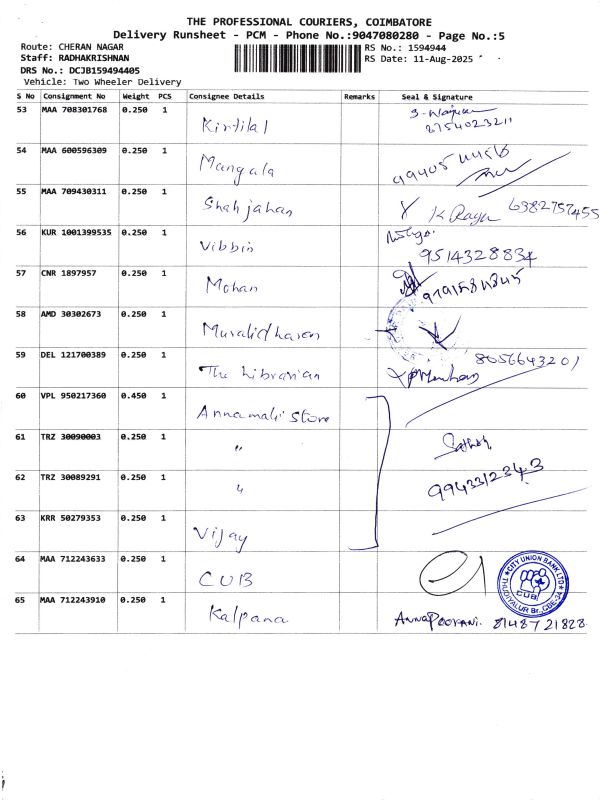 THE PROFESSIONAL COURIERS, COIMBATORE
Delivery Runsheet - PCM - Phone No.:9047080280 - Page No.:5
Route: CHERAN NAGAR
RS No.: 1594944
Staff: RADHAKRISHNAN
RS Date: 11-Aug-2025
DRS No.: DCJB159494405
Vehicle: Two Wheeler Delivery
S No Consignment No Weight PCS Consignee Details Remarks Seal & Signature
53 MAA 708301768 0.250 1 Kirtilal
8754023211
54 MAA 600596309 0.250 1 Mangala
55 MAA 709430311 0.250 1 Shahjahan K Ragu 6382757455
56 KUR 1001399535 0.250 1 Vibbin 9514328834
57 CNR 1897957 0.250 1 Mohan
58 AMD 30302673 0.250 1 Muralidharan
59 DEL 121700389 0.250 1 The Librarian 8056643201
60 VPL 950217360 0.450 1 Annamalai Store
61 TRZ 30090003 0.250 1 "
62 TRZ 30089291 0.250 1 " 9943312343
63 KRR 50279353 0.250 1 Vijay
64 MAA 712243633 0.250 1 CUB
CITY UNION BANK LTD
CUB
THUDIYALUR Br., CBE-34
65 MAA 712243910 0.250 1 Kalpana Annapoorani. 8148721828